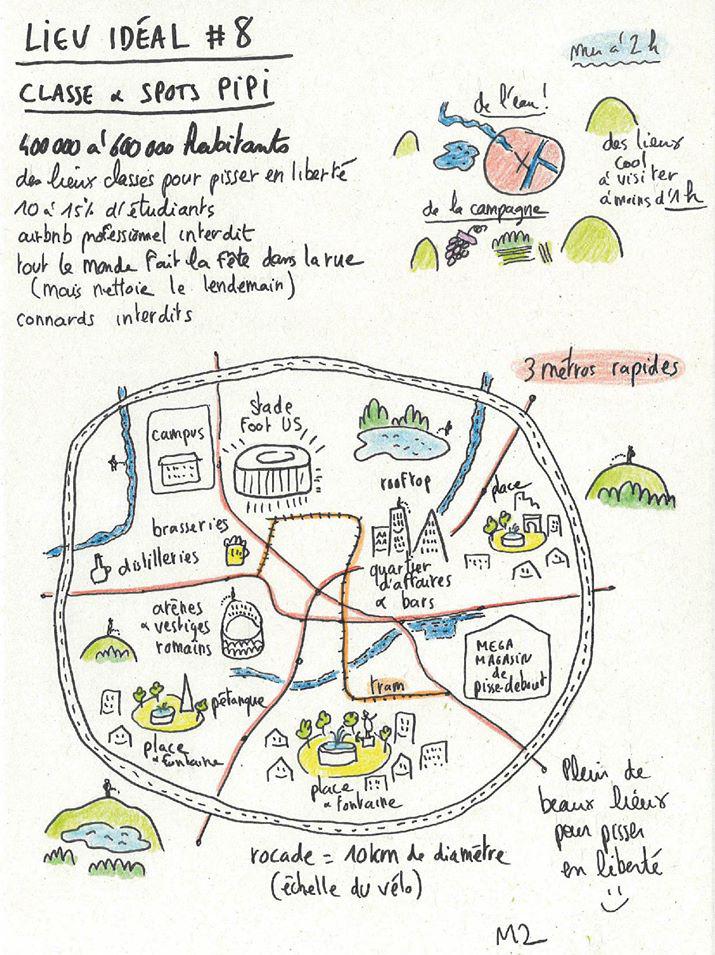 LIEU IDÉAL #8
CLASSE & SPOTS PIPI
400 000 à 600 000 habitants
des lieux classes pour pisser en liberté
10 à 15% d'étudiants
airbnb professionnel interdit
tout le monde fait la fête dans la rue
(mais nettoie le lendemain)
connards interdits
mer à 2h
de l'eau!
des lieux
cool
à visiter
à moins d'1h
de la campagne
3 métros rapides
CAMPUS
Stade
Foot US
rooftop
place
brasseries
distilleries
quartier
d'affaires
& bars
arènes
& vestiges
romains
MEGA
MAGASIN
de
pisse-debout
tram
pétanque
place
& fontaine
place
& fontaine
Plein de
beaux lieux
pour pisser
en liberté
rocade = 10km de diamètre
(échelle du vélo)
M2